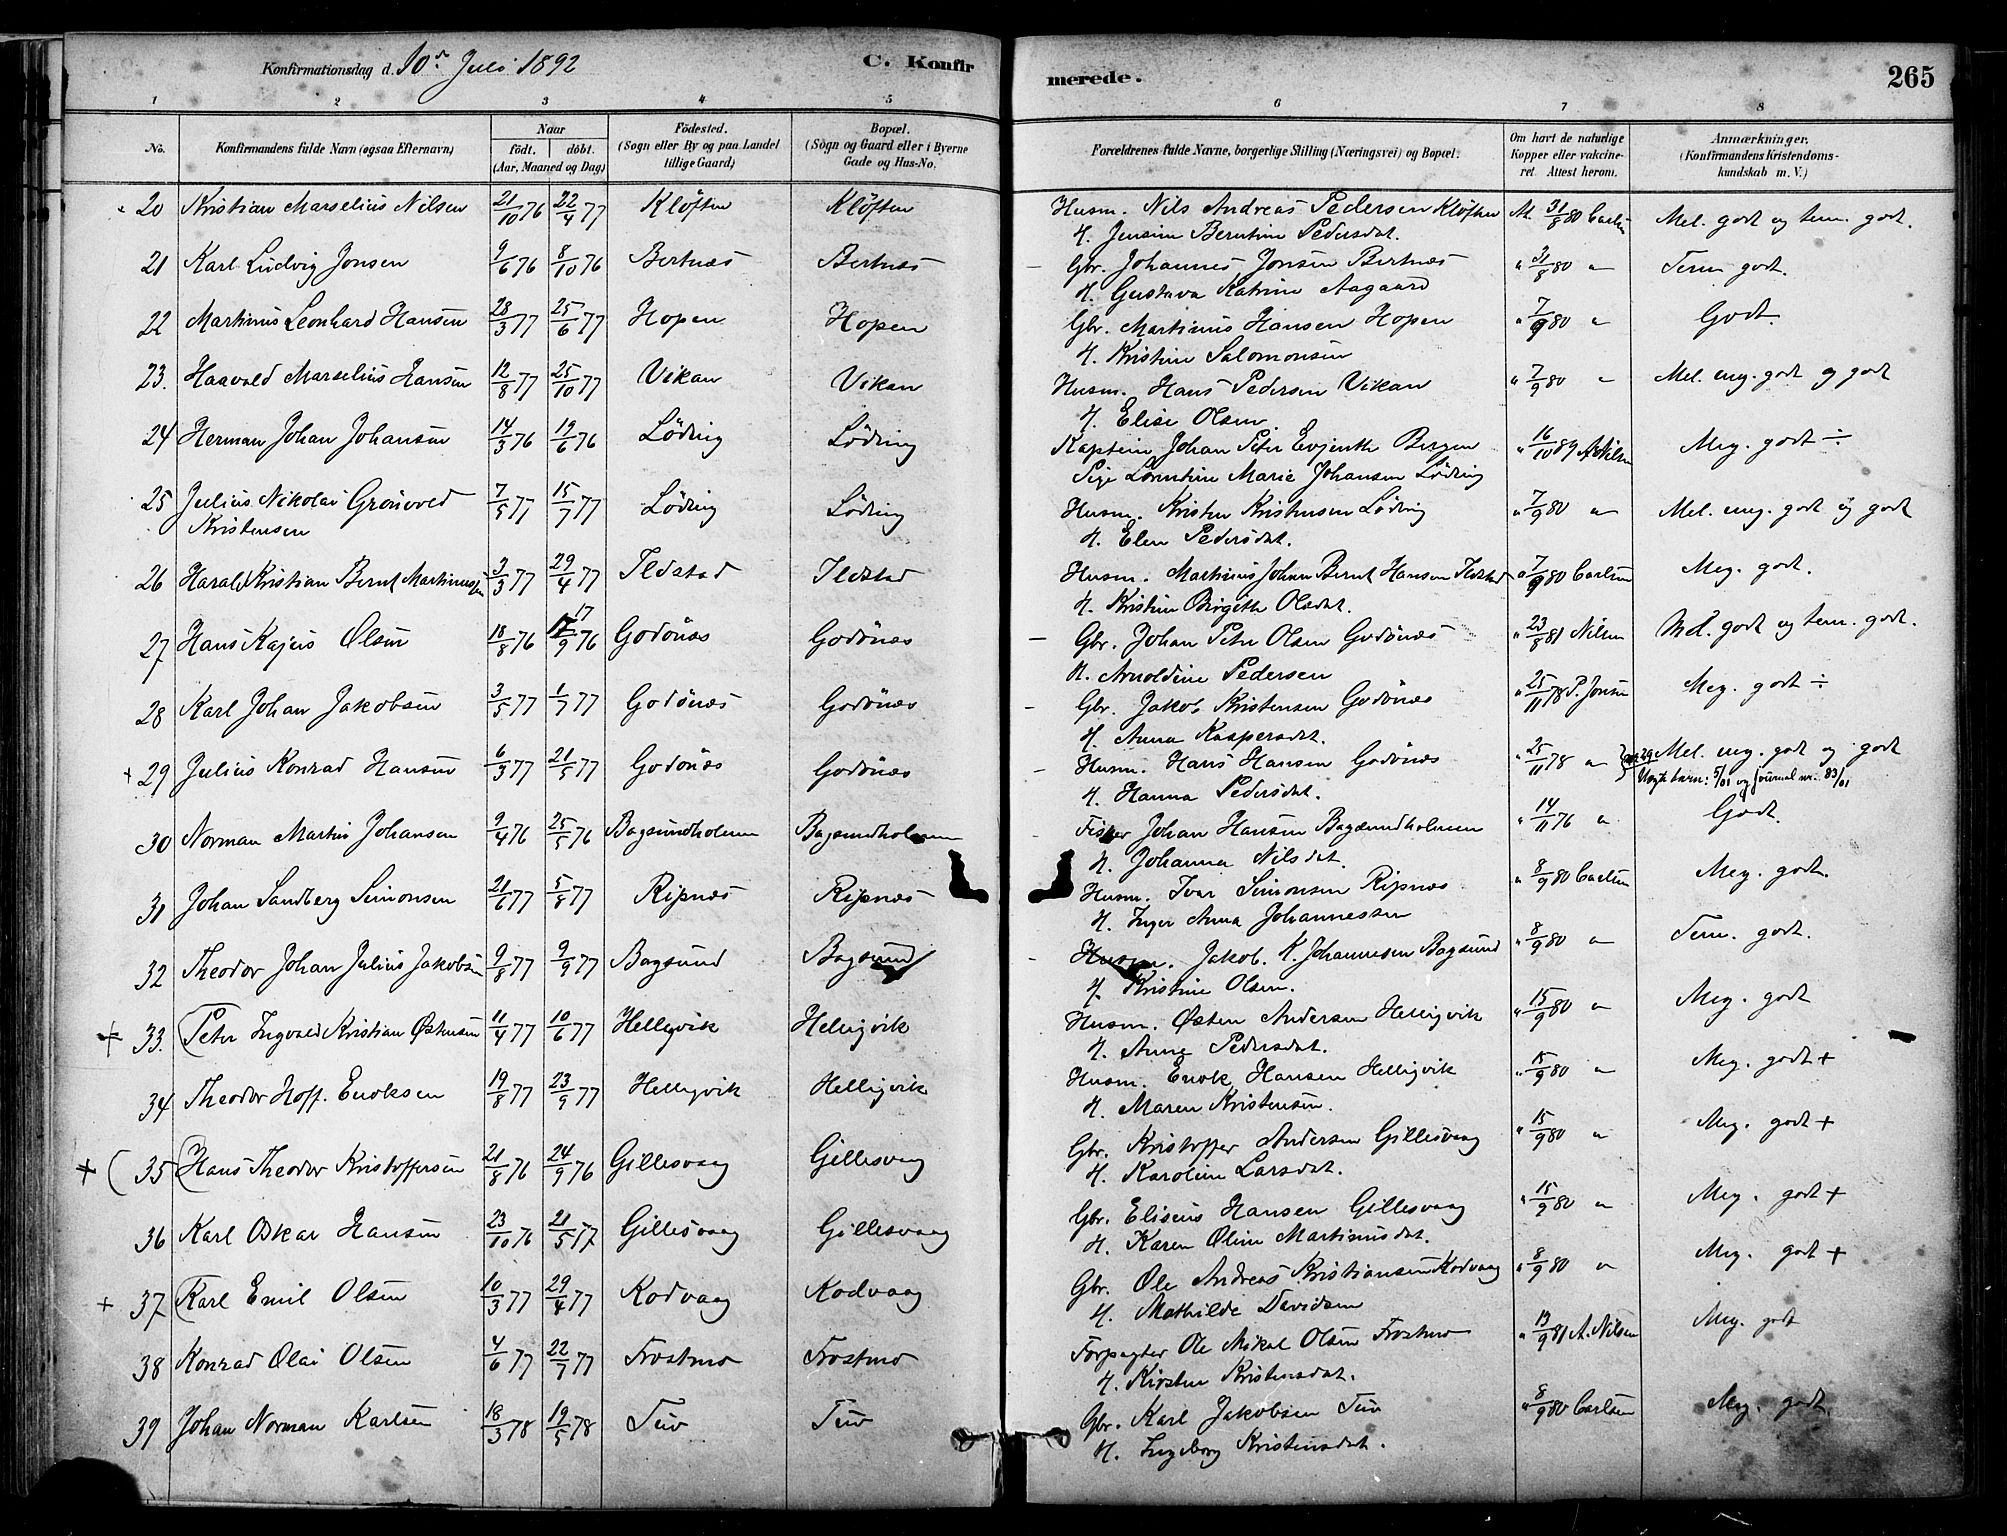 Konfirmationsdag d. 10de Juli 1892
C. Konfirmerede.
265
1 2 3 4 5 6 7 8
No.
Konfirmandens fulde Navn (ogsaa Efternavn)
Naar
födt. döbt.
(Aar, Maaned og Dag)
Födested.
(Sogn eller By og paa Landet
tillige Gaard)
Bopæl.
(Sogn og Gaard eller i Byerne
Gade og Hus-No.
Forældrenes fulde Navne, borgerlige Stilling (Næringsvei) og Bopæl.
Om havt de naturlige
Kopper eller vakcine-
ret. Attest herom.
Anmærkninger.
(Konfirmandens Kristendoms-
kundskab m. V.)
20 Kristian Marselius Nilsen 21/10 76 22/4 77 Klöften Klöften Husm. Nils Andreas Pedersen Klöften At. 31/8 80 Carlsen Mel. godt og tem. godt.
H. Jensine Berntine Pedersdat.
21 Karl Ludvig Jonsen 9/6 76 8/10 76 Bertnæs Bertnæs Gbr. Johannes Jonsen Bertnæs " 31/8 80 " Tem godt.
H. Gustava Katrine Aagaard
22 Martinus Leonhard Hansen 28/3 77 25/6 77 Hopen Hopen Gbr. Martinus Hansen Hopen " 7/9 80 " Godt.
H. Kristine Salomonsen
23. Haavald Marselius Hansen 12/8 77 25/10 77 Vikan Vikan Husm. Hans Pedersen Vikan " 7/9 80 " Mel. meg. godt og godt
H. Elise Olsen.
24 Herman Johan Johansen 14/3 76 19/6 76 Löding Löding Kaptein Johan Peter Evjenth Bergen " 16/10 89 A. Nilsen Meg. godt ÷
Pige Lorentine Marie Johansen Löding
25 Julius Nikolai Grönvold 7/5 77 15/7 77 Löding Löding Husm. Kristen Kristensen Löding " 7/9 80 " Mel. meg. godt og godt
Kristensen H. Elen Pedersdat.
26 Harald Kristian Bernt Martinussen 3/3 77 29/4 77 Ildstad Ildstad Husm. Martinus Johan Bernt Hansen Ildstad " 7/9 80 Carlsen Meg. godt.
H. Kristine Birgitte Olsdat.
27 Hans Kajus Olsen 18/8 76 17/9 76 Godönæs Godönæs Gbr. Johan Peter Olsen Godönæs " 23/8 81 Nilsen Mel. godt og tem. godt.
H. Arnoldine Pedersen
28 Karl Johan Jakobsen 3/5 77 1/7 77 Godönæs Godönæs Gbr. Jakob Kristensen Godönæs " 25/11 78 P. Jonsen Meg. godt ÷
H. Anna Kaspersdat.
29 Julius Konrad Hansen 6/3 77 21/5 77 Godönæs Godönæs Husm. Hans Hansen Godönæs " 25/11 78 " Mel. meg. godt og godt
H. Hanna Pedersdat. 5/01 og journal nr. 83/01
30 Norman Martin Johansen 9/4 76 25/5 76 Bagsundholmen Bagsundholmen Fisker Johan Hansen Bagsundholmen " 14/11 76 " Godt.
H. Johanna Nilsdat.
31 Johan Sandberg Simonsen 21/6 77 5/8 77 Ripnæs Ripnæs Husm. Ivar Simonsen Ripnæs " 8/9 80 Carlsen Meg. godt.
H. Inger Anna Johannessen
32 Theodor Johan Julius Jakobsen 9/8 77 9/9 77 Bagsund Bagsund Husm. Jakob. K. Johannesen Bagsund " 8/9 80 " Tem. godt.
H. Kristine Olsen.
33. Peter Ingvald Kristian Östensen 11/4 77 10/6 77 Helligvik Helligvik Husm. Östen Andersen Helligvik " 15/9 80 " Meg. godt
H. Anne Pedersdat.
34 Theodor Hoff. Enoksen 19/8 77 23/9 77 Helligvik Helligvik Husm. Enok Hansen Helligvik " 15/9 80 " Meg. godt +
H. Maren Kristensen.
35 Hans Theodor Kristoffersen 21/8 76 24/9 76 Gillesvaag Gillesvaag Gbr. Kristoffer Andersen Gillesvaag " 15/9 80 " Meg. godt +
H. Karoline Larsdat.
36 Karl Oskar Hansen 23/10 76 21/5 77 Gillesvaag Gillesvaag Gbr. Eliseus Hansen Gillesvaag " 15/9 80 " Meg. godt +
H. Karen Oline Martinusdat.
37 Karl Emil Olsen 10/3 77 29/4 77 Kodvaag Kodvaag Gbr. Ole Andreas Kristiansen Kodvaag " 8/9 80 " Meg. godt +
H. Mathilde Davidsen
38 Konrad Olai Olsen 4/6 77 22/7 77 Frostmo Frostmo Forpagter Ole Mikal Olsen Frostmo " 13/9 81 A. Nilsen Meg. godt
H. Kirsten Kristensdat.
39 Johan Norman Karlsen 18/3 78 19/5 78 Tuv Tuv Gbr. Karl Jakobsen Tuv " 8/9 80 Carlsen Meg. godt.
H. Ingeborg Kristensdat.